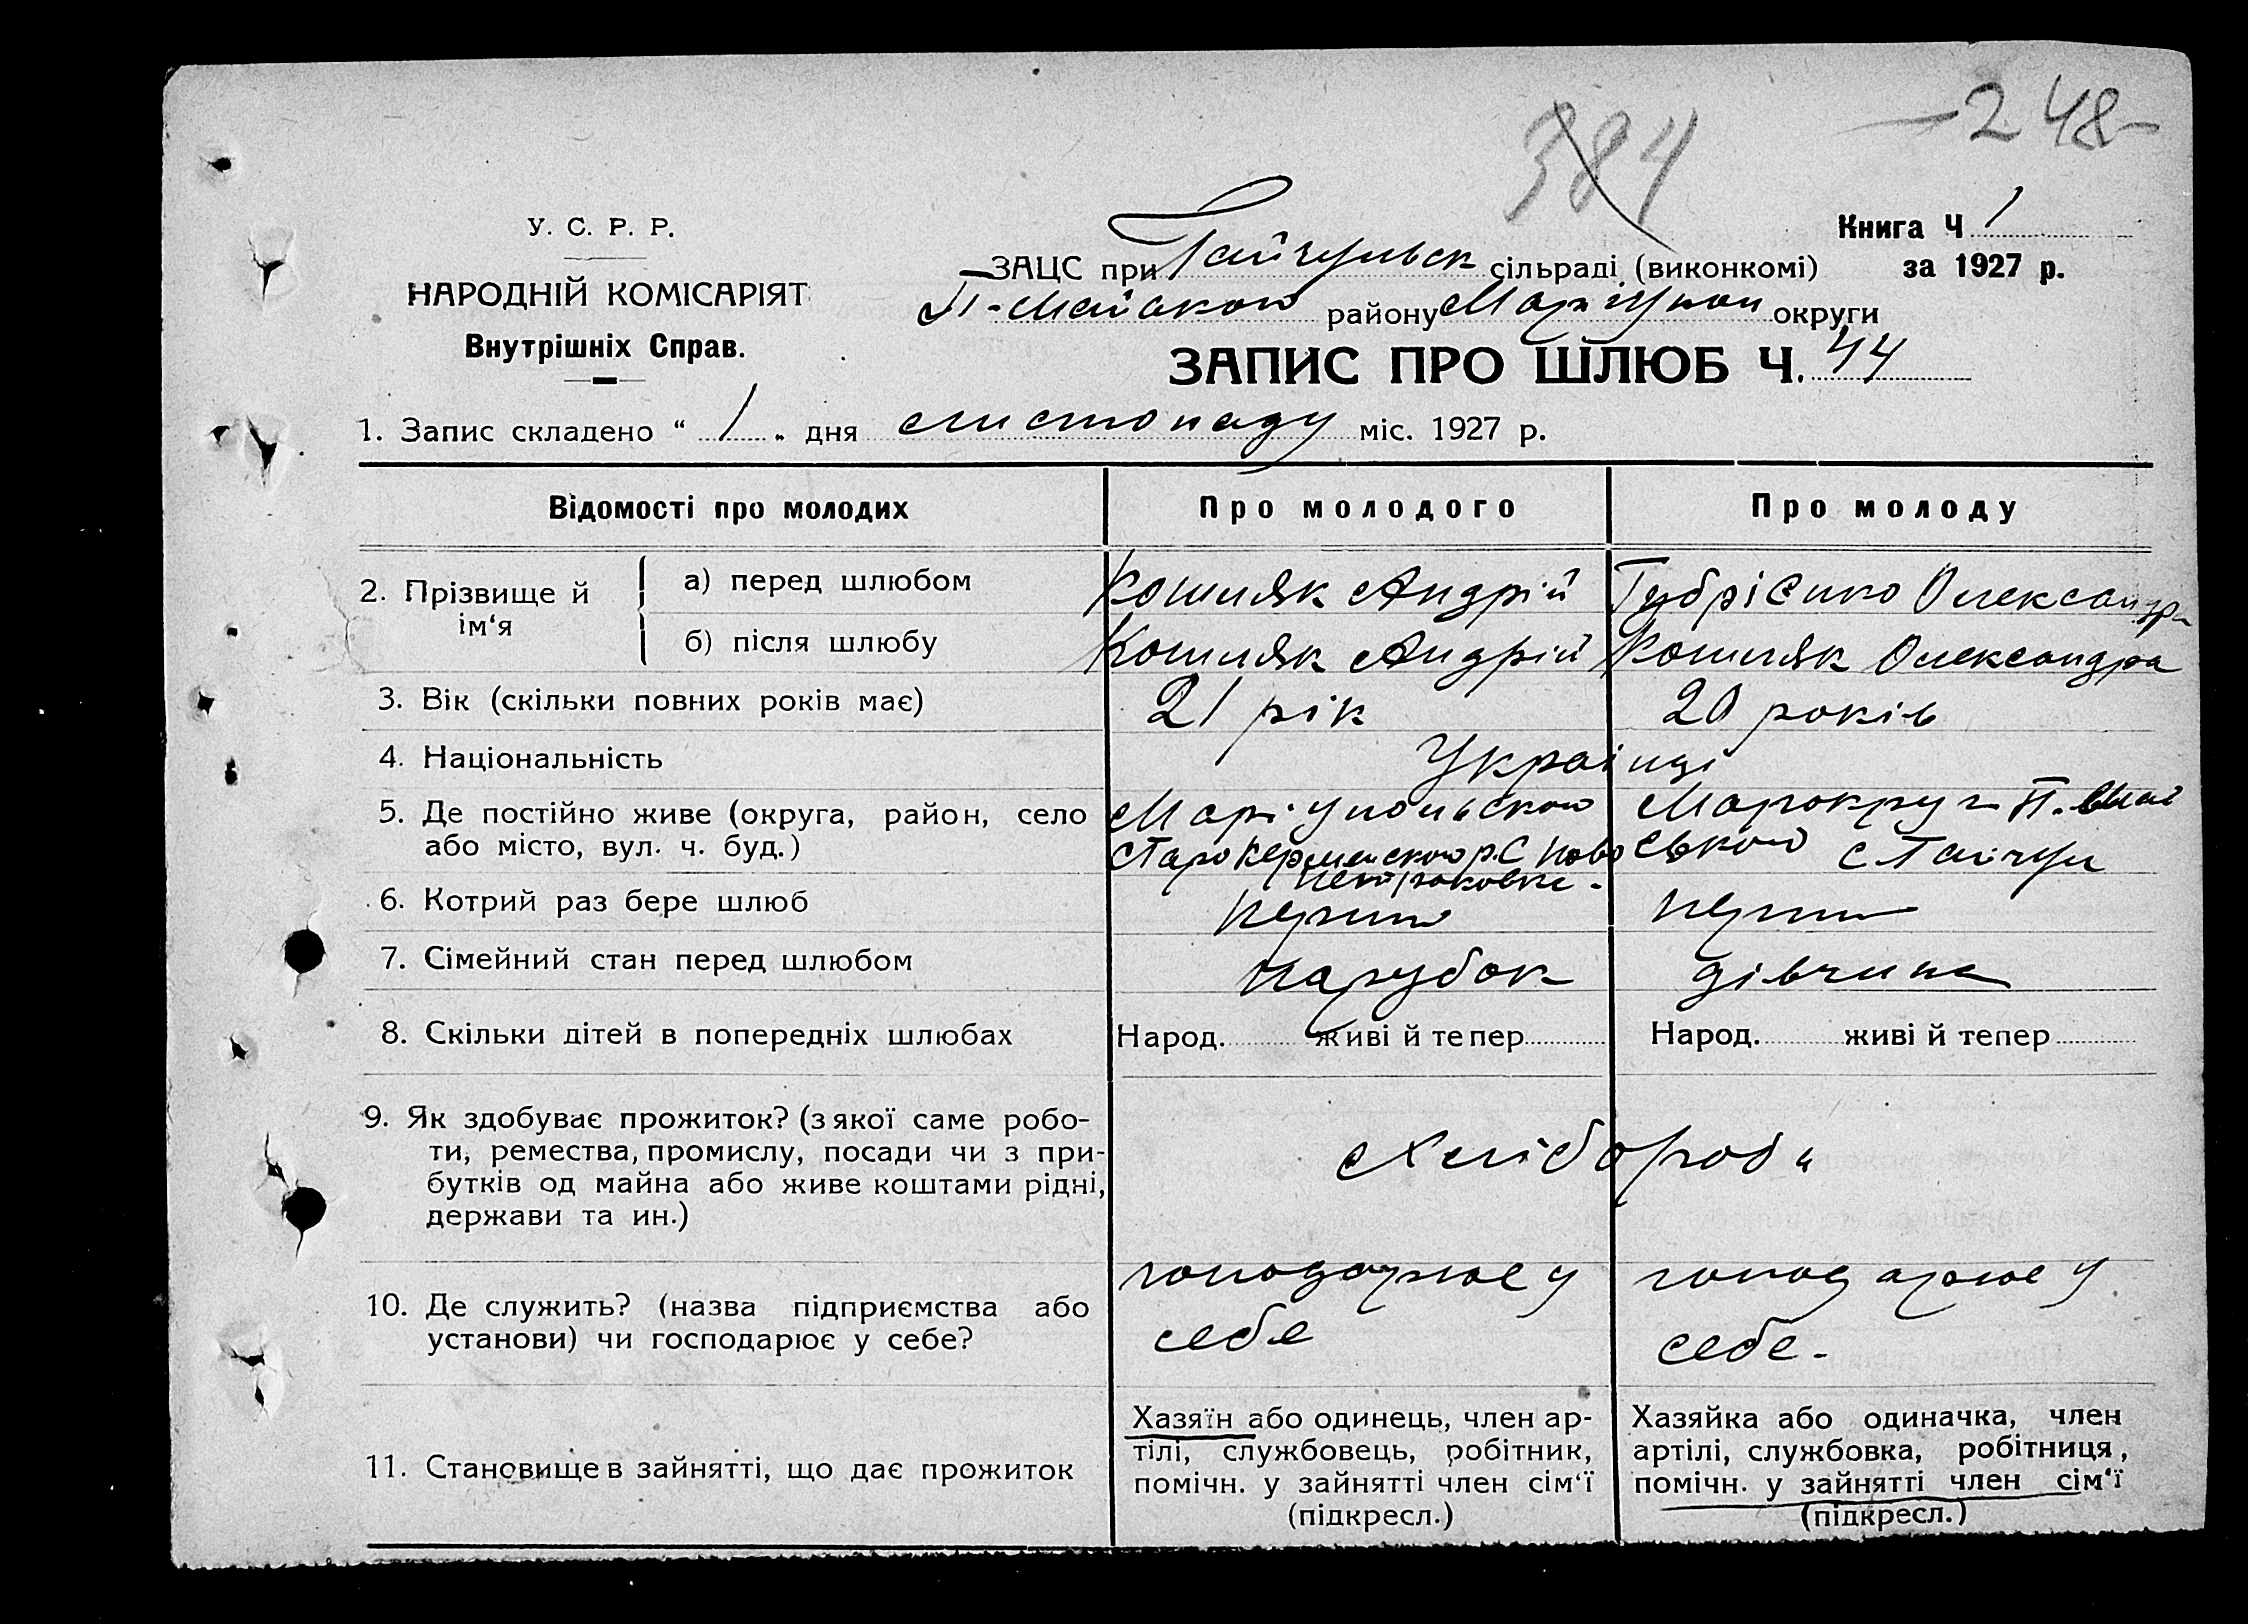 384
-248-
У. С. Р. Р.
НАРОДНІЙ КОМІСАРІЯТ
Внутрішніх Справ.
Книга Ч 1
за 1927 р.
ЗАЦС при Гайчульск сільраді (виконкомі)
району Маріупол округи
ЗАПИС ПРО ШЛЮБ Ч. 44
1. Запис складено " 1 " дня листопаду міс. 1927 р.
Відомості про молодих
Про молодого
Про молоду
2. Прізвище й ім'я
а) перед шлюбом
Кошляк Андрій
Олександра
б) після шлюбу
Кошляк Андрій
Кошляк Олександра
3. Вік (скільки повних років має)
21 рік
20 років
4. Національність
Українці
5. Де постійно живе (округа, район, село
або місто, вул. ч. буд.)
Маріупольської
Старо Керменської р. С Ново
петриковка -
ської с Гайчул
6. Котрий раз бере шлюб
перший
перш
7. Сімейний стан перед шлюбом
парубок
дівчина
8. Скільки дітей в попередніх шлюбах
Народ. живі й тепер
Народ. живі й тепер
9. Як здобуває прожиток? (з якої саме робо-
ти, ремества, промислу, посади чи з при-
бутків од майна або живе коштами рідні,
держави та ин.)
Хлібороби
10. Де служить? (назва підприємства або
установи) чи господарює у себе?
господарює у
себе
господарює у
себе.
11. Становище в зайнятті, що дає прожиток
Хазяїн або одинець, член ар-
тілі, службовець, робітник,
помічн. у зайнятті член сім'ї
(підкресл.)
Хазяйка або одиначка, член
артілі, службовка, робітниця,
помічн. у зайнятті член сім'ї
(підкресл.)